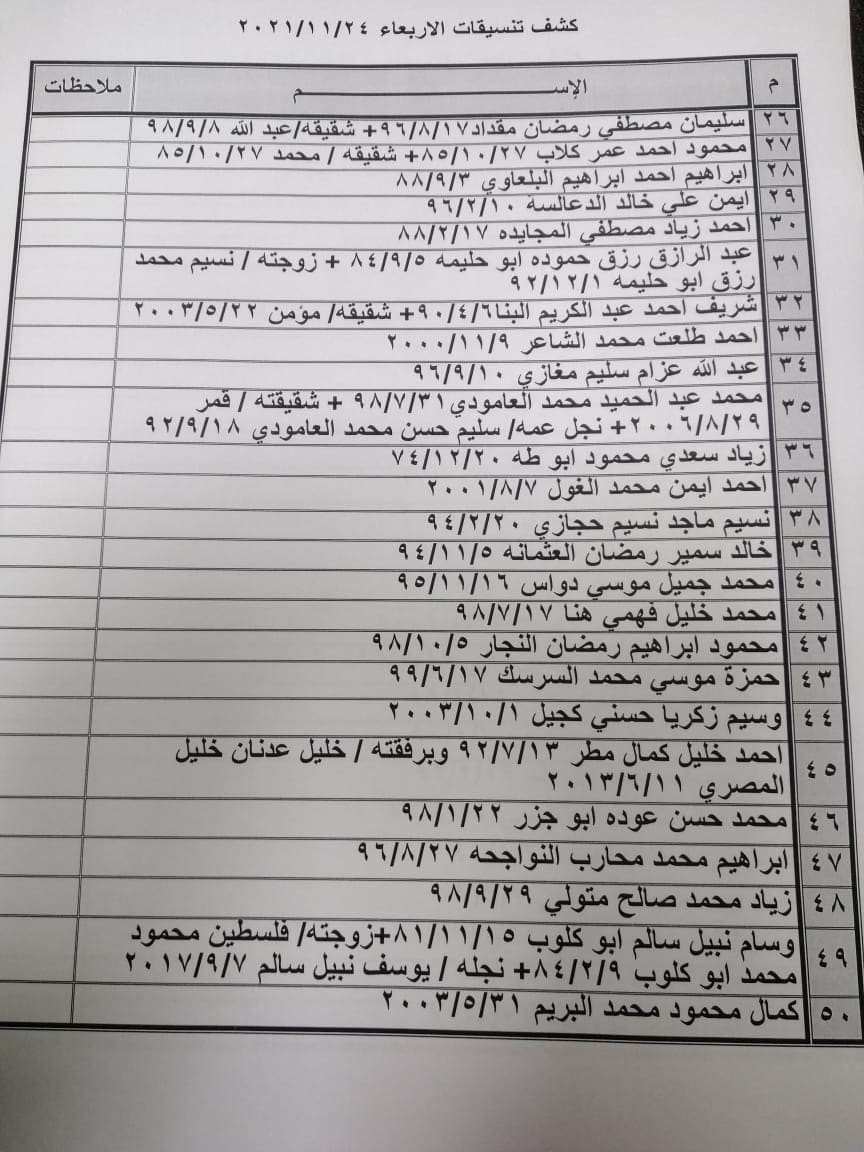 كشف تنسيقات الاربعاء ٢٠٢١/١١/٢٤
م الإســـم ملاحظات
٢٦ سليمان مصطفي رمضان مقداد٩٦/٨/١٧+ شقيقه/عبد الله ٩٨/٩/٨
٢٧ محمود احمد عمر كلاب ٨٥/١٠/٢٧+ شقيقه / محمد ٨٥/١٠/٢٧
٢٨ ابراهيم احمد ابراهيم البلعاوي ٨٨/٩/٣
٢٩ ايمن علي خالد الدعالسة ٩٦/٢/١٠
٣٠ احمد زياد مصطفي المجايده ٨٨/٢/١٧
٣١ عبد الرازق رزق حموده ابو حليمه ٨٤/٩/٥ + زوجته / نسيم محمد
رزق ابو حليمه ٩٢/١٢/١
٣٢ شريف احمد عبد الكريم البنا٩٠/٤/٦+ شقيقه/ مؤمن ٢٠٠٣/٥/٢٢
٣٣ احمد طلعت محمد الشاعر ٢٠٠٠/١١/٩
٣٤ عبد الله عزام سليم مغازي ٩٦/٩/١٠
٣٥ محمد عبد الحميد محمد العامودي٩٨/٧/٣١ + شقيقته / قمر
٢٠٠٦/٨/٢٩+ نجل عمه/ سليم حسن محمد العامودي ٩٢/٩/١٨
٣٦ زياد سعدي محمود ابو طه ٧٤/١٢/٢٠
٣٧ احمد ايمن محمد الغول ٢٠٠١/٨/٧
٣٨ نسيم ماجد نسيم حجازي ٩٤/٢/٢٠
٣٩ خالد سمير رمضان العثمانه ٩٤/١١/٥
٤٠ محمد جميل موسي دواس ٩٥/١١/١٦
٤١ محمد خليل فهمي هنا ٩٨/٧/١٧
٤٢ محمود ابراهيم رمضان النجار ٩٨/١٠/٥
٤٣ حمزة موسي محمد السرسك ٩٩/٦/١٧
٤٤ وسيم زكريا حسني كجيل ٢٠٠٣/١٠/١
٤٥ احمد خليل كمال مطر ٩٢/٧/١٣ وبرفقته / خليل عدنان خليل
المصري ٢٠١٣/٦/١١
٤٦ محمد حسن عوده ابو جزر ٩٨/١/٢٢
٤٧ ابراهيم محمد محارب النواجحه ٩٦/٨/٢٧
٤٨ زياد محمد صالح متولي ٩٨/٩/٢٩
٤٩ وسام نبيل سالم ابو كلوب ٨١/١١/١٥+زوجته/ فلسطين محمود
محمد ابو كلوب ٨٤/٢/٩+ نجله / يوسف نبيل سالم ٢٠١٧/٩/٧
٥٠ كمال محمود محمد البريم ٢٠٠٣/٥/٣١